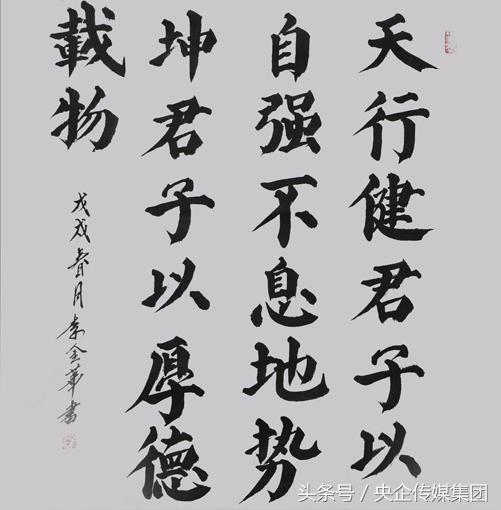 天行健君子以
自强不息地势
坤君子以厚德
載物
戊戌春月李金華書
头条号／央企传媒集团